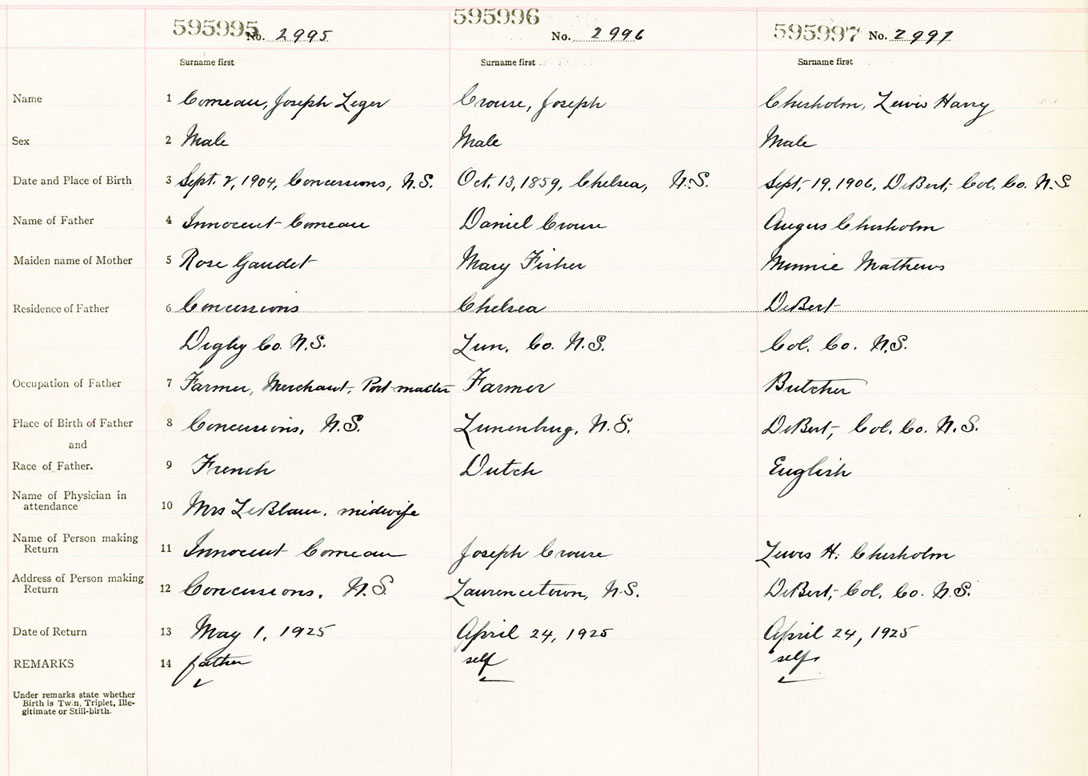 595995 No. 2995 595996 No. 2996 595997 No. 2997
Surname first Surname first Surname first
Name 1 Comeau, Joseph Leger Crouse, Joseph Chisholm, Lewis Harry
Sex 2 Male Male Male
Date and Place of Birth 3 Sept. 2, 1904, Concessions, N.S. Oct. 13, 1859, Chelsea, N.S. Sept. 19, 1906, DeBert, Col. Co. N.S
Name of Father 4 Innocent Comeau Daniel Crouse Angus Chisholm
Maiden name of Mother 5 Rose Gaudet Mary Fisher Minnie Mathews
Residence of Father 6 Concessions Chelsea DeBert
Digby Co. N.S. Lun. Co. N.S. Col. Co. N.S.
Occupation of Father 7 Farmer, Merchant, Post master Farmer Butcher
Place of Birth of Father 8 Concessions, N.S. Lunenburg, N.S. DeBert, Col. Co. N.S.
and
Race of Father. 9 French Dutch English
Name of Physician in
attendance 10 Mrs LeBlanc, midwife
Name of Person making
Return 11 Innocent Comeau Joseph Crouse Lewis H. Chisholm
Address of Person making
Return 12 Concessions, N.S Lawrencetown, N.S. DeBert, Col. Co. N.S.
Date of Return 13 May 1, 1925 April 24, 1925 April 24, 1925
REMARKS 14 father self self
Under remarks state whether
Birth is Twin, Triplet, Ille-
gitimate or Still-birth.